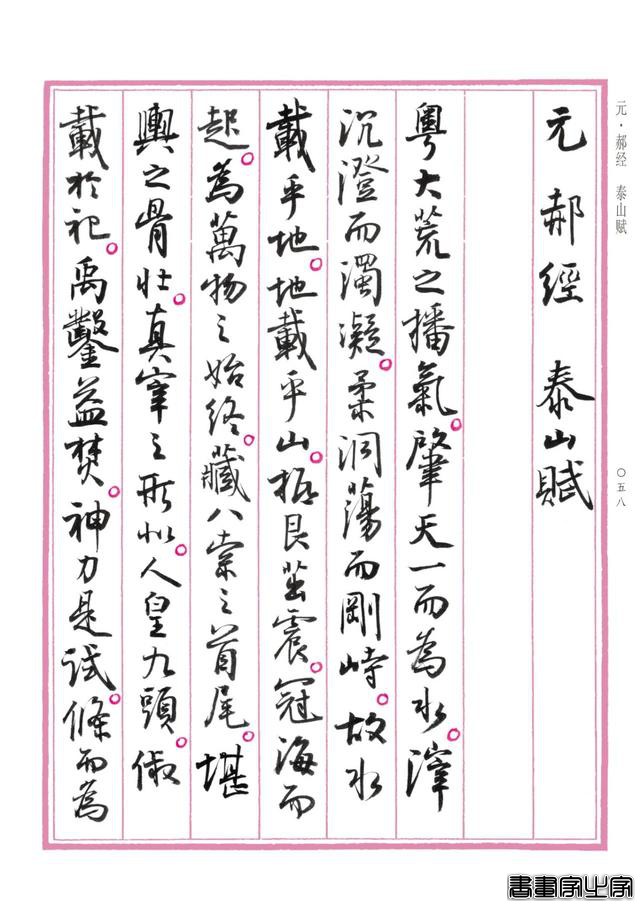 元·郝经 泰山赋
〇五八
元 郝經 泰山賦
粵大荒之播氣。肇天一而為水。滓
沉澄而濁凝。柔洞蕩而剛峙。故水
載乎地。地載乎山。極艮茁震。冠海而
起。為萬物之始終。藏八索之首尾。堪
輿之骨壯。真宰之形似。人皇九頭。俶
載於祀。禹鑿益焚。神力是試。條而為
書畫家出字